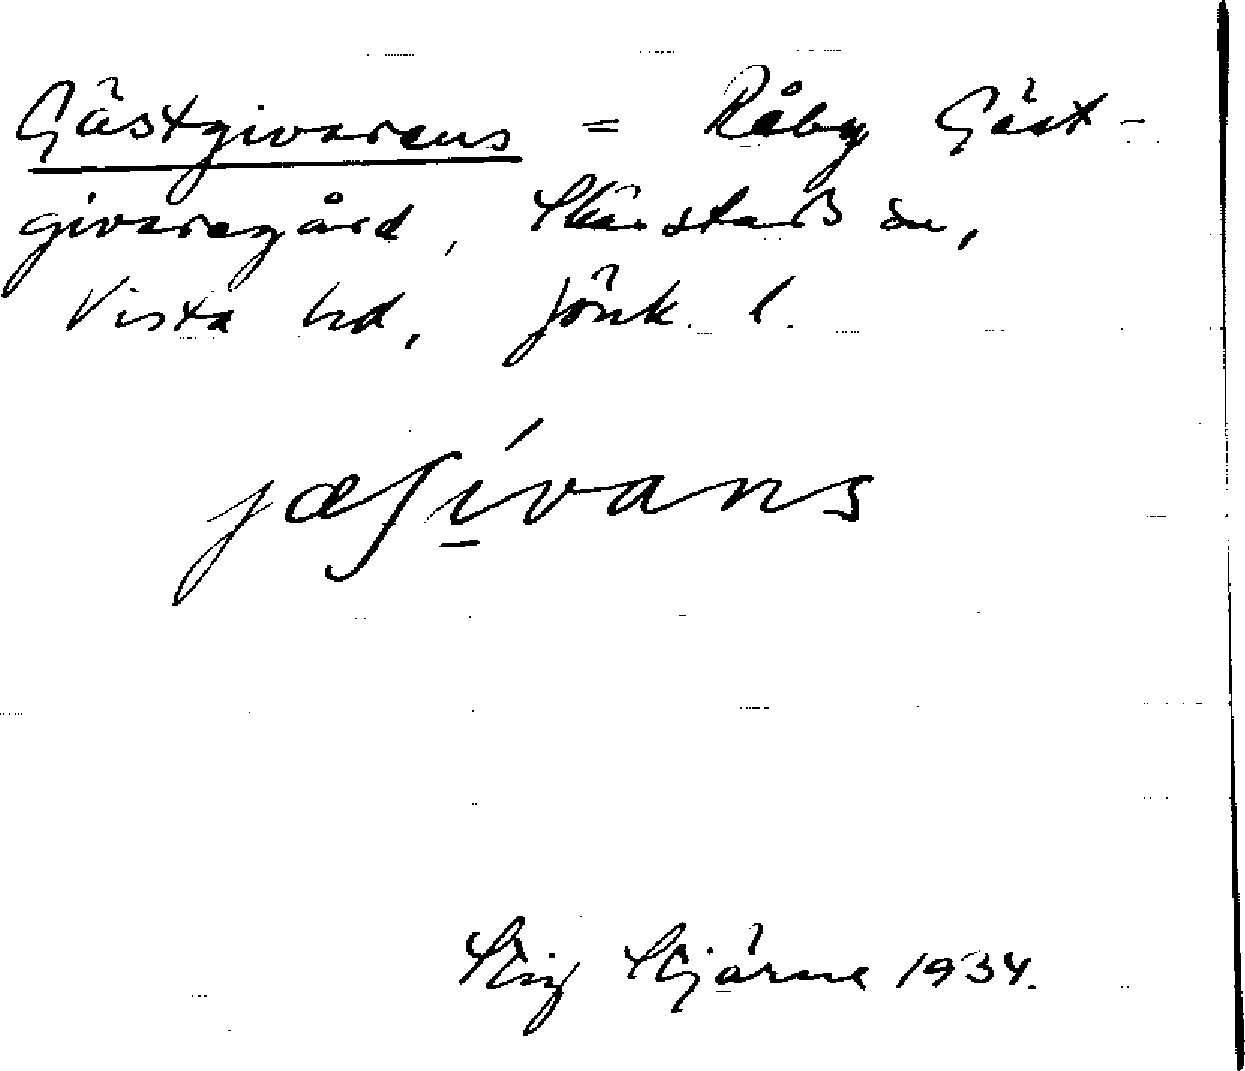 Gästgivarens = Råby Gäst-
givaregård, Skärstads sn,
Vista hd, Jönk. l.
jæʃívans
Stig Stjärne 1934.